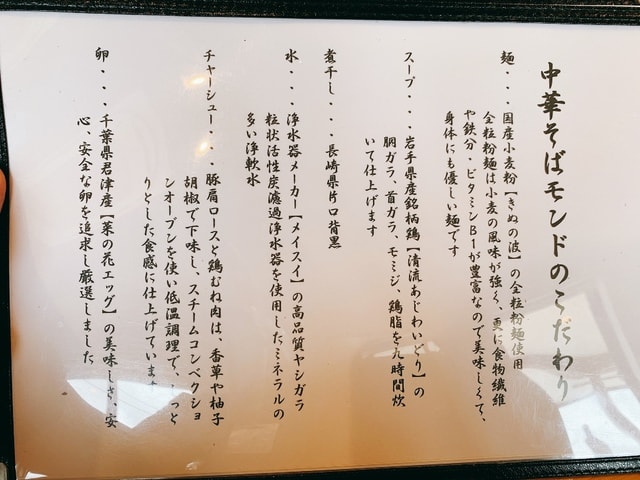 中華そばモンドのこだわり
麺・・・国産小麦粉【きぬの波】の全粒粉麺使用
全粒粉麺は小麦の風味が強く、更に食物繊維
や鉄分・ビタミンB1が豊富なので美味しくて、
身体にも優しい麺です
スープ・・・岩手県産銘柄鶏【清流あじわいどり】の
胴ガラ、首ガラ、モミジ、鶏脂を九時間炊
いて仕上げます
煮干し・・・長崎県片口背黒
水・・・浄水器メーカー【メイスイ】の高品質ヤシガラ
粒状活性炭濾過浄水器を使用したミネラルの
多い浄軟水
チャーシュー・・・豚肩ロースと鶏むね肉は、香草や柚子
胡椒で下味し、スチームコンベクショ
ンオーブンを使い低温調理で、っと
りとした食感に仕上げています
卵・・・千葉県君津産【菜の花エッグ】の美味しさ、安
心、安全な卵を追求し厳選しました